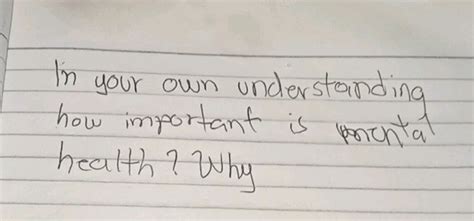 In your own understanding
how important is mental
health? Why